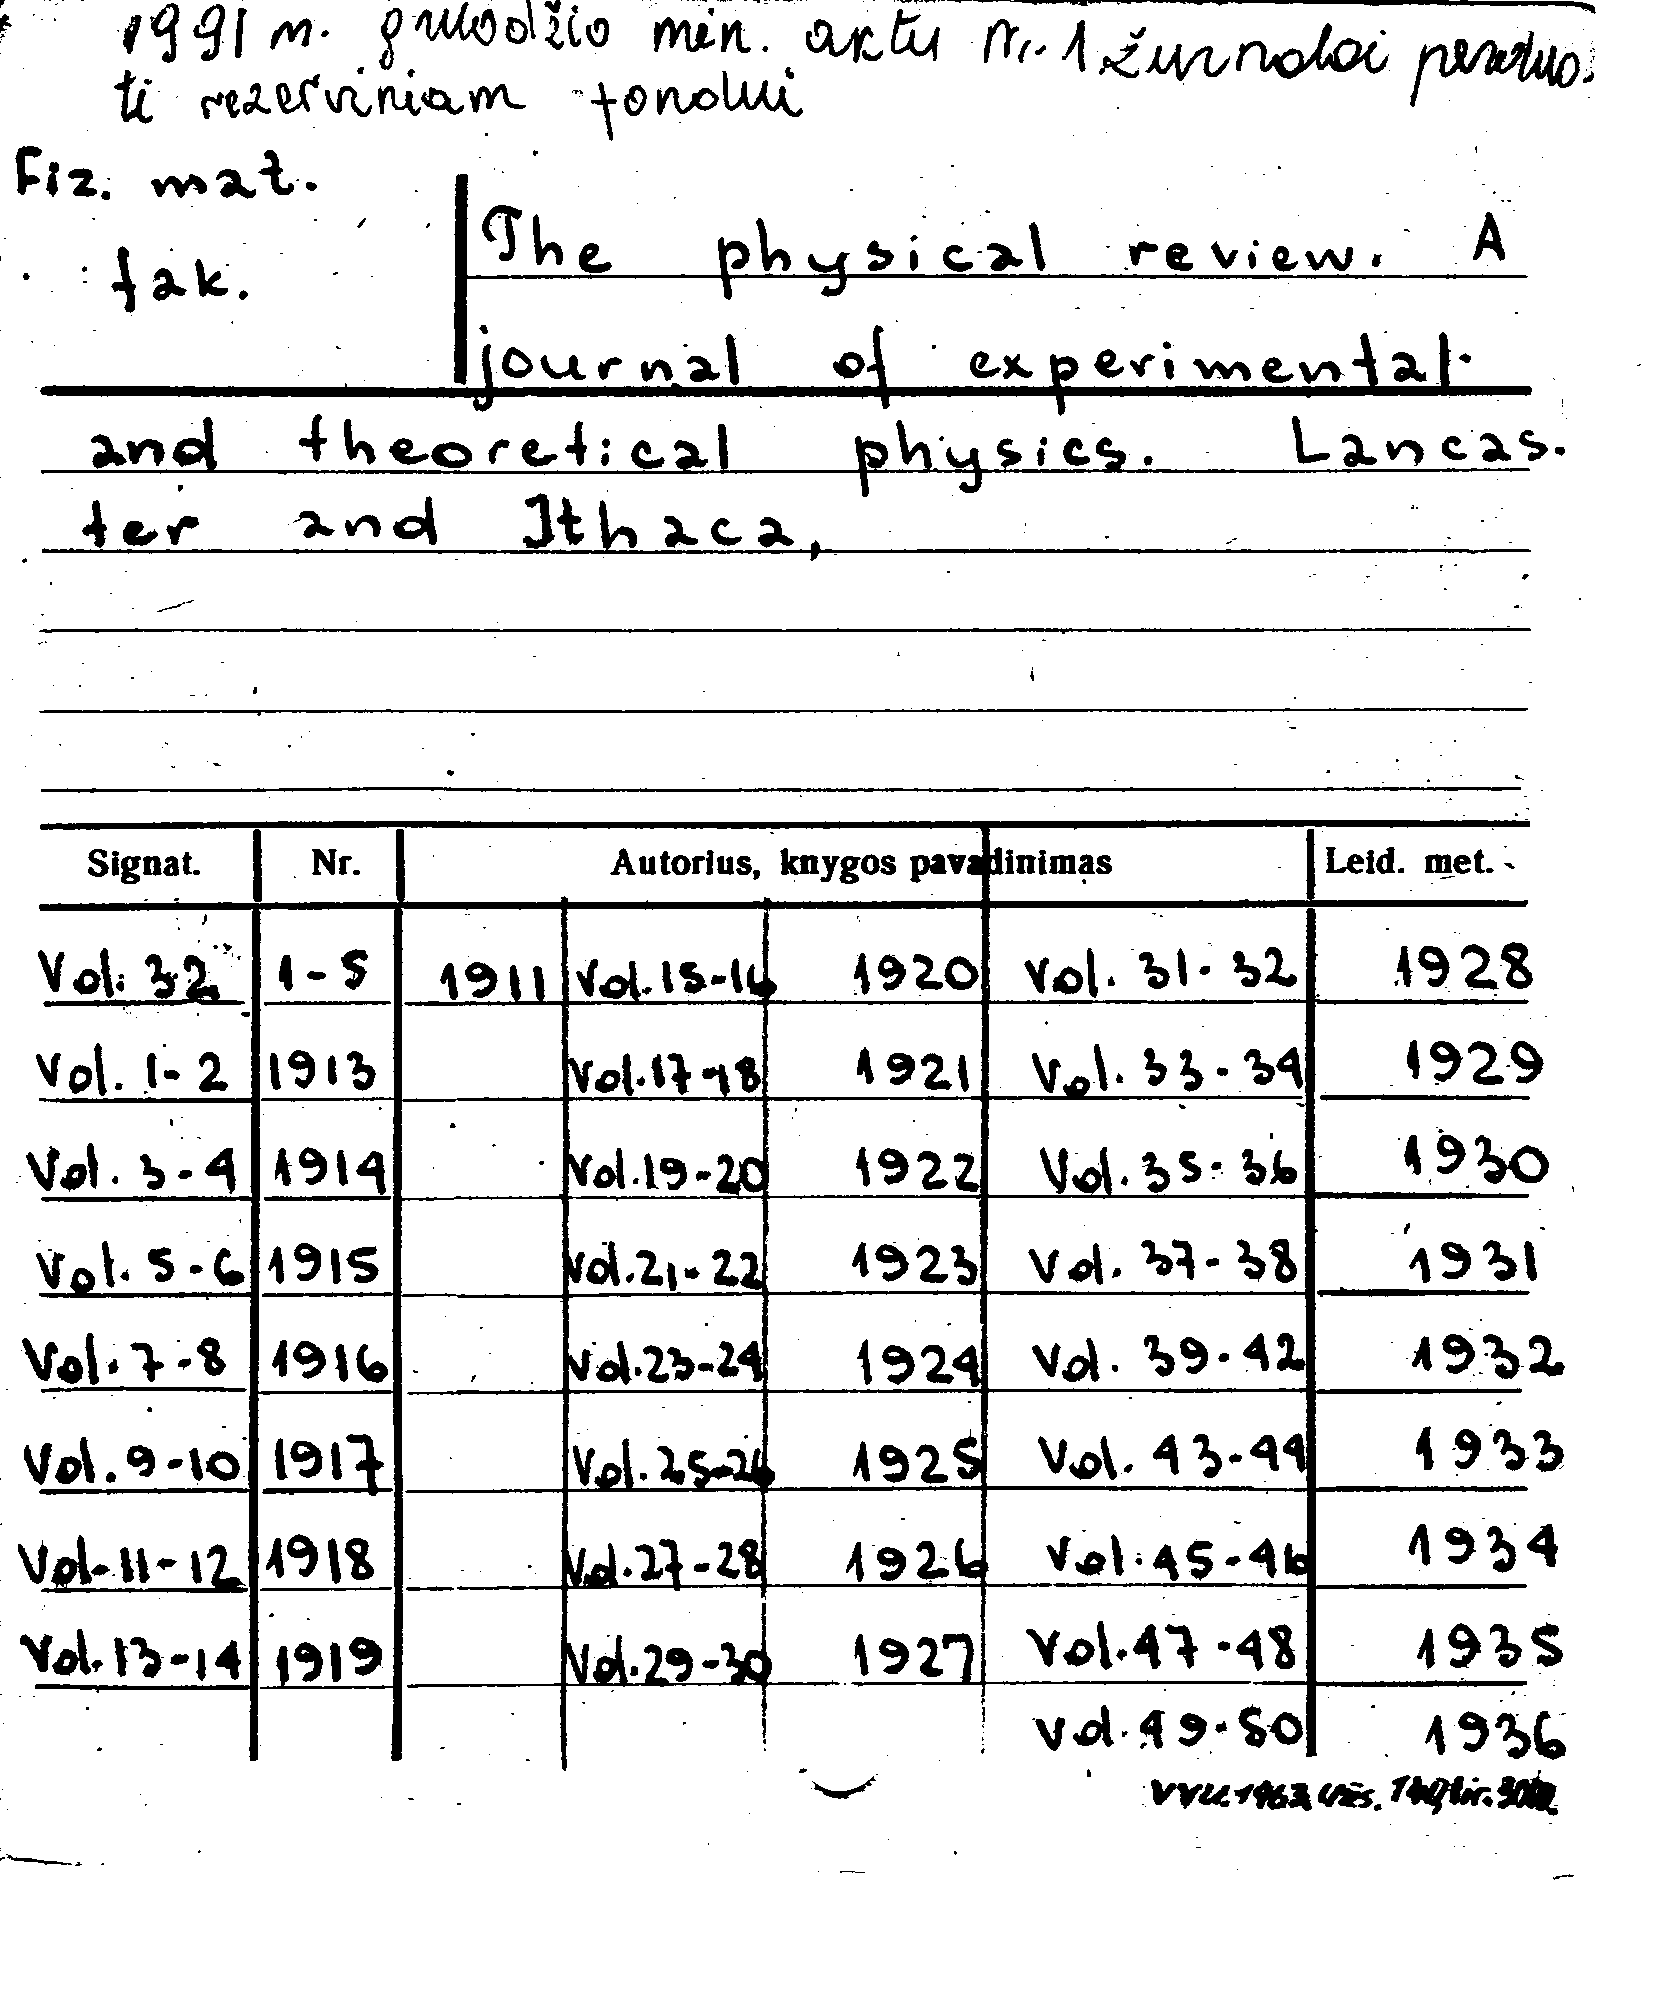 1991 m. gruodžio mėn. aktu Nr. 1 žurnalai perduo-
ti rezerviniam fondui
Fiz. mat.
fak.
The physical review. A
journal of experimental
and theoretical physics. Lancas.
ter and Ithaca,
Signat. Nr. Autorius, knygos pavadinimas Leid. met.
Vol. 32 1-5 1911 Vol. 15-16 1920 Vol. 31-32 1928
Vol. 1-2 1913 Vol. 17-18 1921 Vol. 33-34 1929
Vol. 3-4 1914 Vol. 19-20 1922 Vol. 35-36 1930
Vol. 5-6 1915 Vol. 21-22 1923 Vol. 37-38 1931
Vol. 7-8 1916 Vol. 23-24 1924 Vol. 39-42 1932
Vol. 9-10 1917 Vol. 25-26 1925 Vol. 43-44 1933
Vol. 11-12 1918 Vol. 27-28 1926 Vol. 45-46 1934
Vol. 13-14 1919 Vol. 29-30 1927 Vol. 47-48 1935
Vol. 49-50 1936